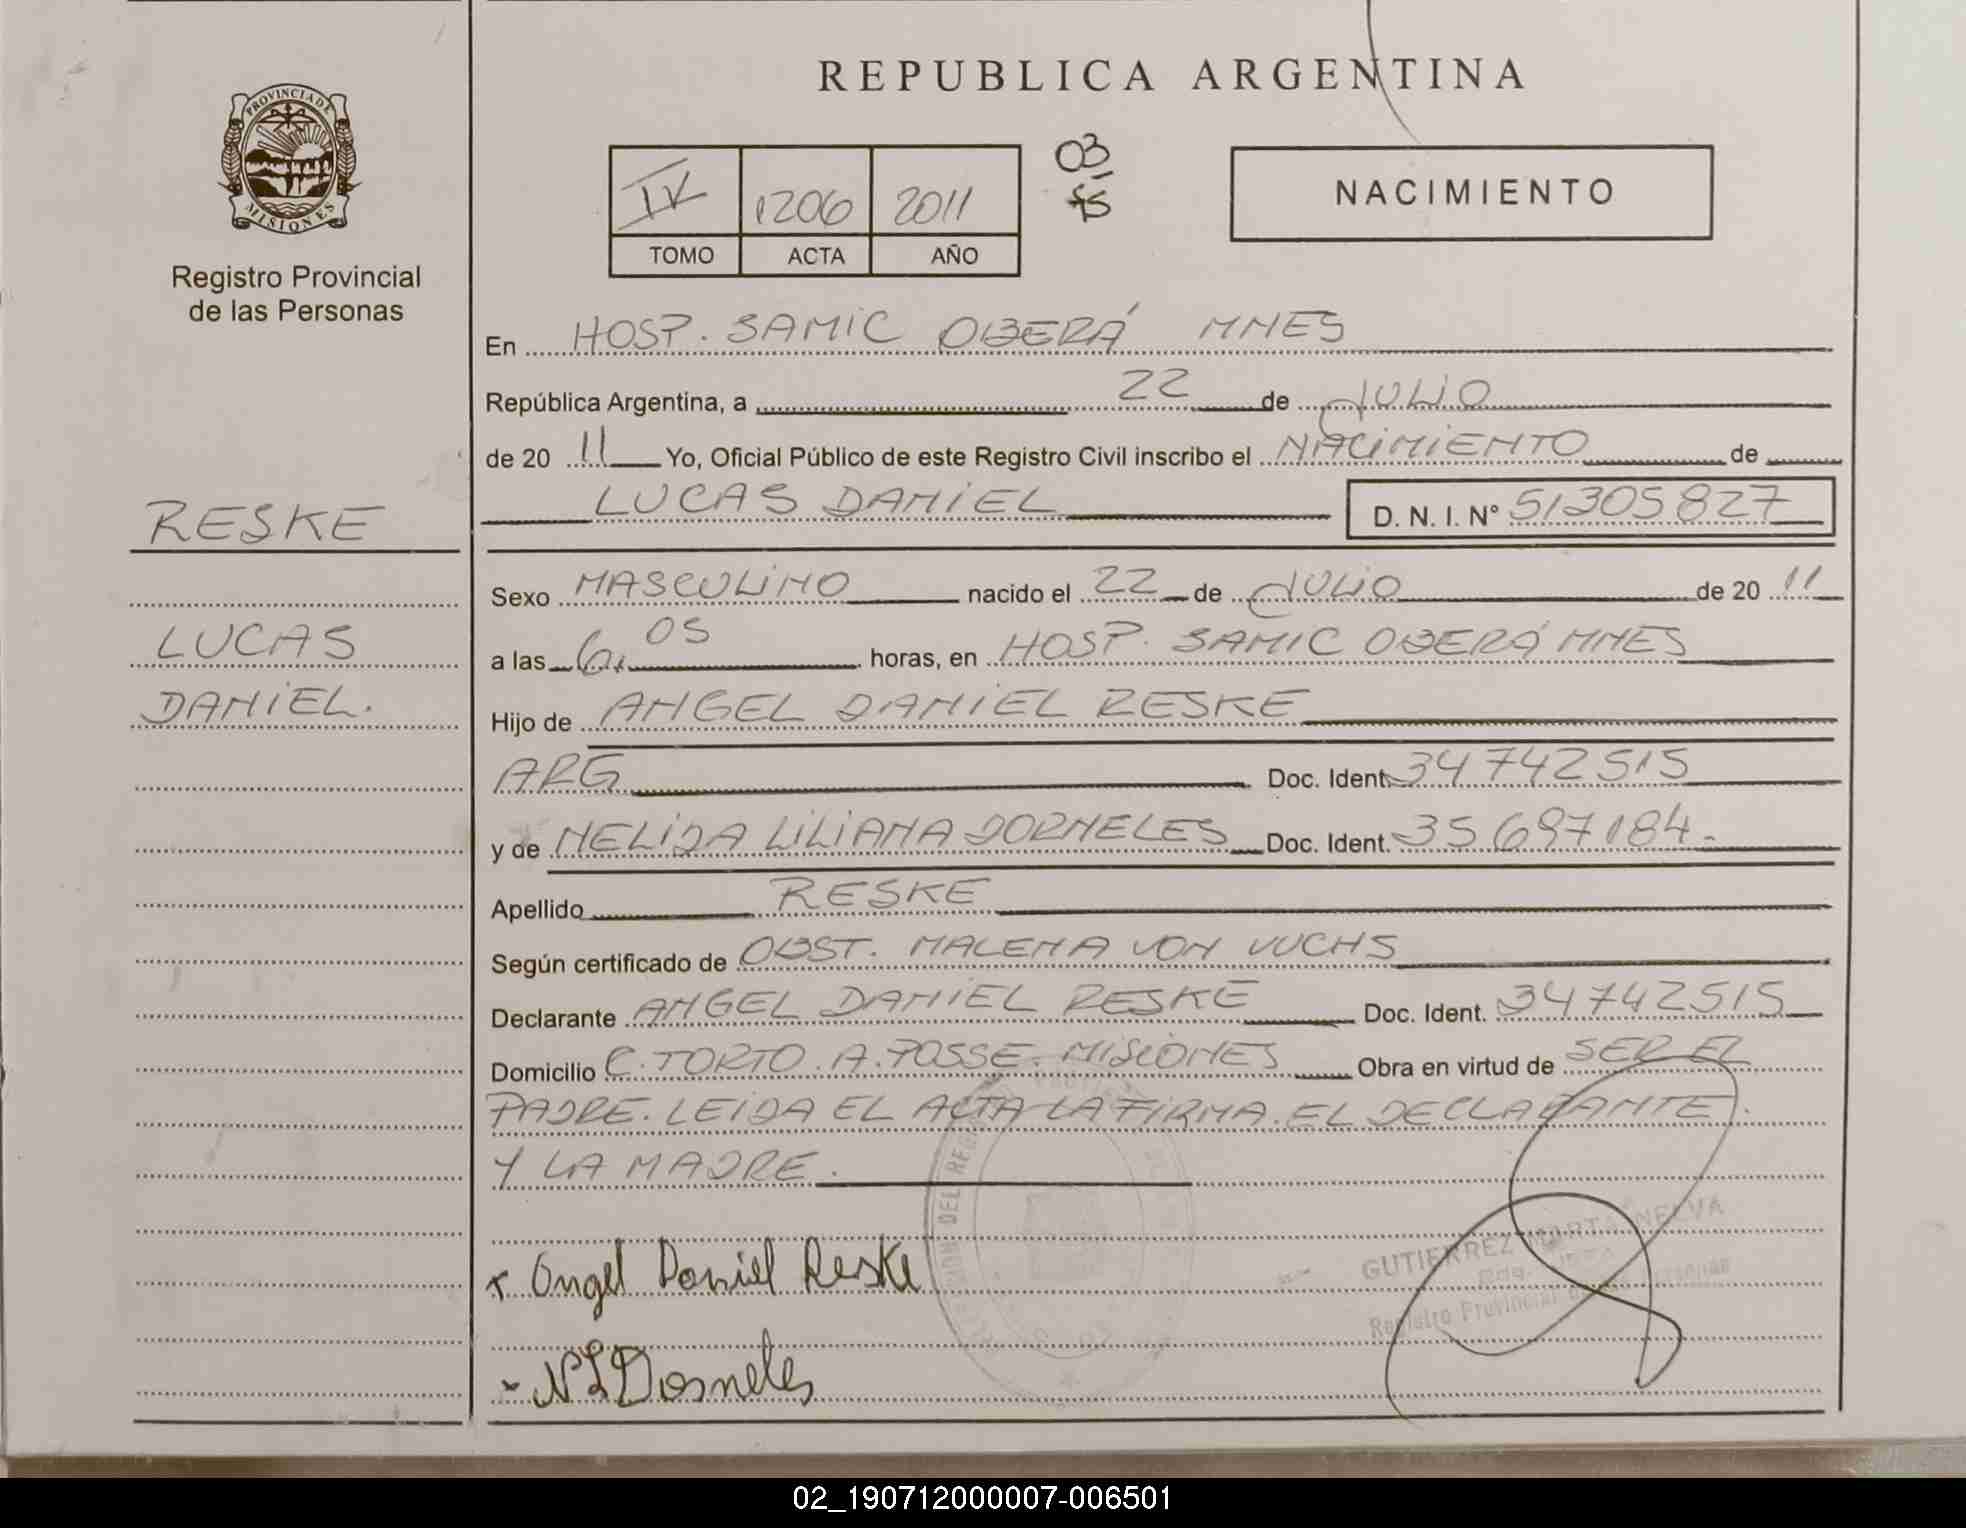 REPUBLICA ARGENTINA
PROVINCIA DE
MISIONES
Registro Provincial
de las Personas
IV 1206 2011
TOMO ACTA AÑO
03
NACIMIENTO
En HOSP. SAMIC OBERÁ MNES
República Argentina, a 22 de JULIO
de 20 11 Yo, Oficial Público de este Registro Civil inscribo el NACIMIENTO de
LUCAS DANIEL D. N. I. N° 51305827
RESKE
LUCAS
DANIEL.
Sexo MASCULINO nacido el 22 de JULIO de 20 11
a las 6. 05 horas, en HOSP. SAMIC OBERÁ MNES
Hijo de ANGEL DANIEL RESKE
ARG Doc. Ident. 34742515
y de NELIDA LILIANA DORNELES Doc. Ident. 35697184.
Apellido RESKE
Según certificado de OBST. MALENA VON VUCHS
Declarante ANGEL DANIEL RESKE Doc. Ident. 34742515
Domicilio C. TORTO. A. POSSE. MISIONES Obra en virtud de SER EL
PADRE. LEIDA EL ACTA LA FIRMA. EL DECLARANTE.
Y LA MADRE.
x Angel Daniel Reske
GUTIERREZ MARTA NELVA
Registro Provincial de las Personas
- NLDorneles
02_190712000007-006501